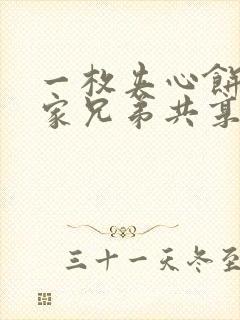 一枚夹心餅
家兄弟共
三十一天冬至